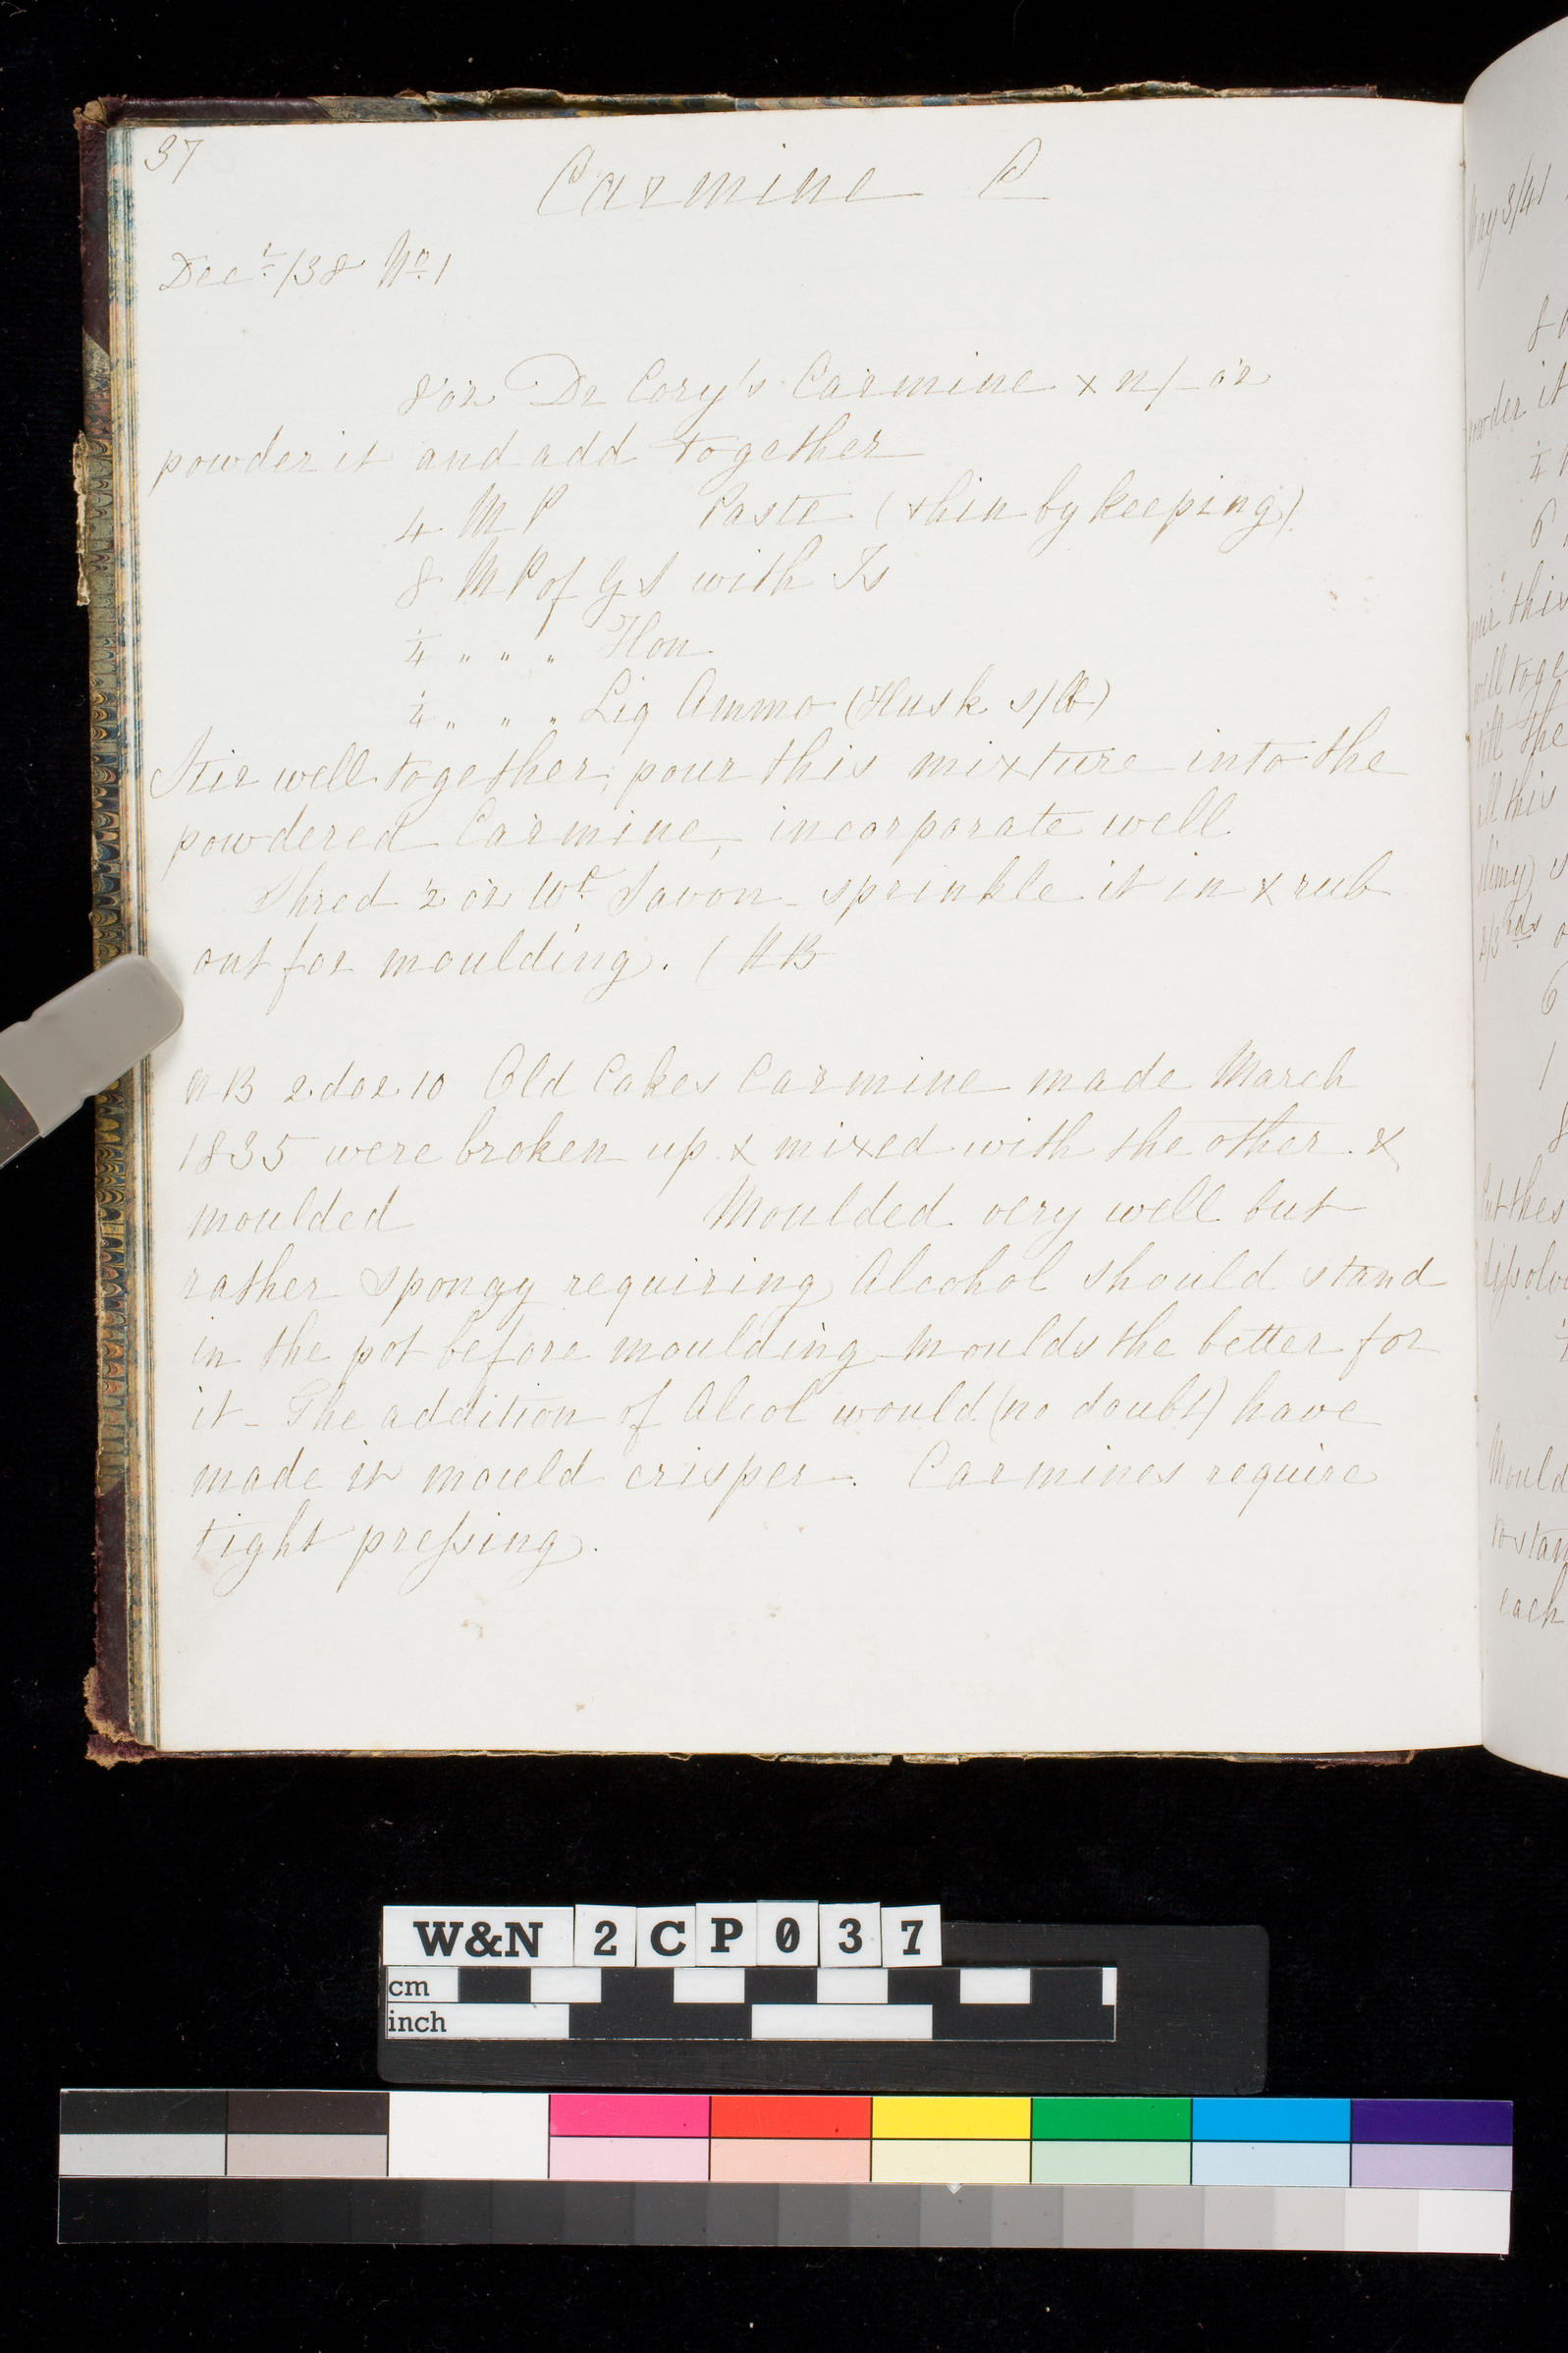 37
Carmine C
Decr /38 No 1
8 oz Dr Cory's Carmine x n/- oz
powder it and add together
4 M P Paste (thin by keeping)
8 M P of G S with Is
1/4 " " " Hon
1/4 " " " Liq Ammo (Husk s/lb)
Stir well together, pour this mixture into the
powdered Carmine, incorporate well
Shred 2 oz Wt Savon - sprinkle it in & rub
out for moulding. (N B
N B 2 doz 10 Old Cakes Carmine made March
1835 were broken up & mixed with the other &
moulded Moulded very well but
rather spongy requiring Alcohol should stand
in the pot before moulding moulds the better for
it - The addition of Alcol would (no doubt) have
made it mould crisper -. Carmines require
tight pressing.
May 3/41
8 o
powder it
1/4
6
this
well toge
till the
all this
slimy)
2/3rds
6
1
8
Put thes
dissolve
Mould
to stan
each
W&N 2CP037
cm
inch